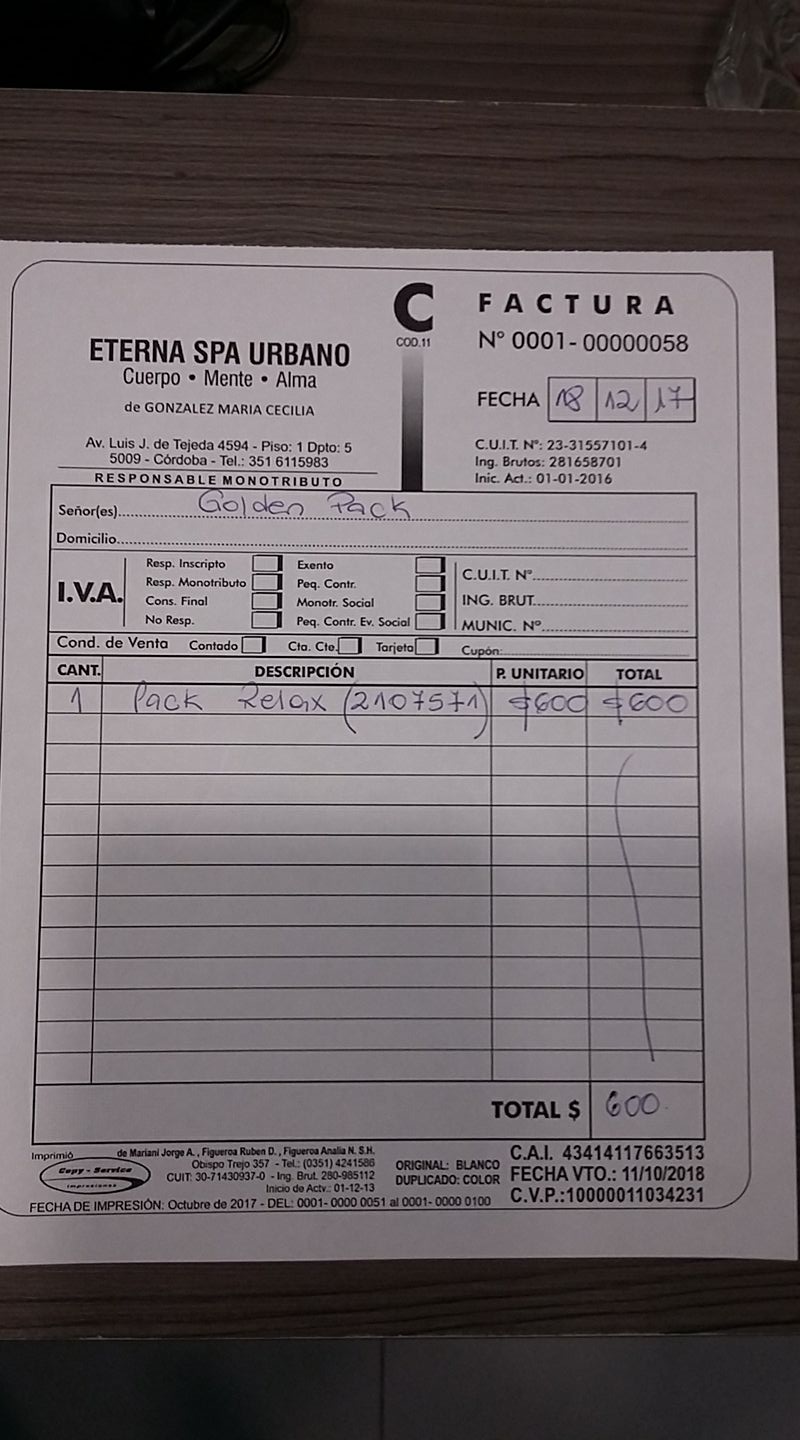 C
COD.11
FACTURA
N° 0001- 00000058
ETERNA SPA URBANO
Cuerpo • Mente • Alma
de GONZALEZ MARIA CECILIA
FECHA 18 12 17
Av. Luis J. de Tejeda 4594 - Piso: 1 Dpto: 5
5009 - Córdoba - Tel.: 351 6115983
RESPONSABLE MONOTRIBUTO
C.U.I.T. N°: 23-31557101-4
Ing. Brutos: 281658701
Inic. Act.: 01-01-2016
Señor(es) Golden Pack
Domicilio
I.V.A.
Resp. Inscripto
Resp. Monotributo
Cons. Final
No Resp.
Exento
Peq. Contr.
Monotr. Social
Peq. Contr. Ev. Social
C.U.I.T. N°
ING. BRUT.
MUNIC. N°
Cond. de Venta Contado Cta. Cte. Tarjeta Cupón:
CANT. DESCRIPCIÓN P. UNITARIO TOTAL
1 Pack Relax (2107571) $600 $600
TOTAL $ 600
Imprimió
Copy - Service
impresiones
de Mariani Jorge A. , Figueroa Ruben D. , Figueroa Analia N. S.H.
Obispo Trejo 357 - Tel.: (0351) 4241586
CUIT: 30-71430937-0 - Ing. Brut. 280-985112
Inicio de Actv.: 01-12-13
ORIGINAL: BLANCO
DUPLICADO: COLOR
C.A.I. 43414117663513
FECHA VTO.: 11/10/2018
C.V.P.:10000011034231
FECHA DE IMPRESIÓN: Octubre de 2017 - DEL: 0001- 0000 0051 al 0001- 0000 0100